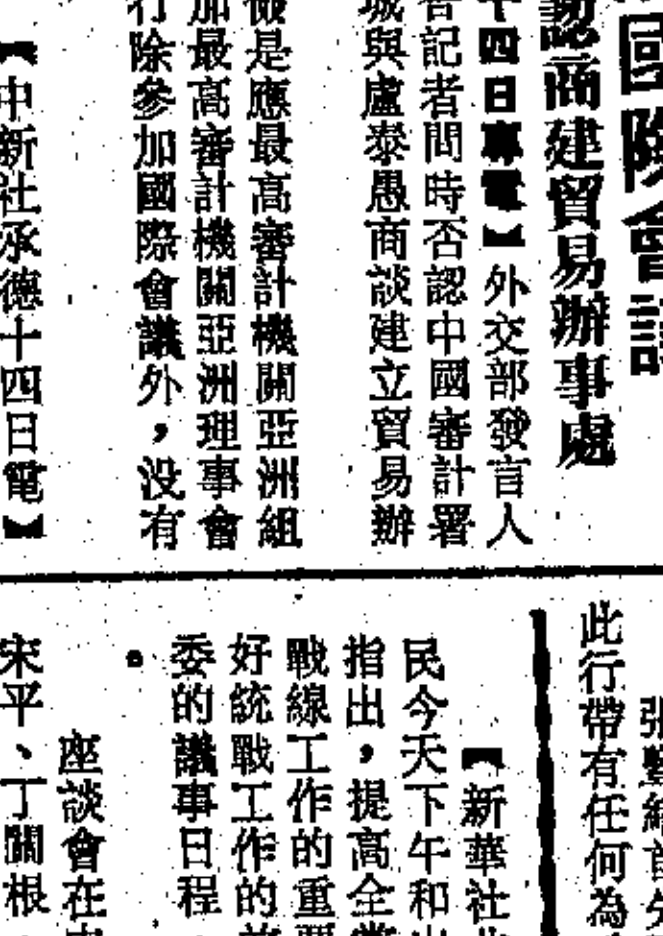 國際會議
認商建貿易辦事處
十四日專電】外交部發言人
答記者問時否認中國審計署
城與盧泰愚商談建立貿易辦
是應最高審計機關亞洲組
加最高審計機關亞洲理事會
行除參加國際會議外，没有
【中新社承德十四日電】
此行帶有任何為
【新華社
民今天下午和
指出，提高全黨
戰線工作的重要
好統戰工作的
委的議事日程
。
座談會在
宋平、丁關根